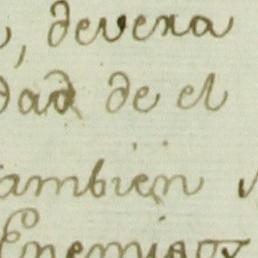 , devexa
dad de el
ambien
Enemigos